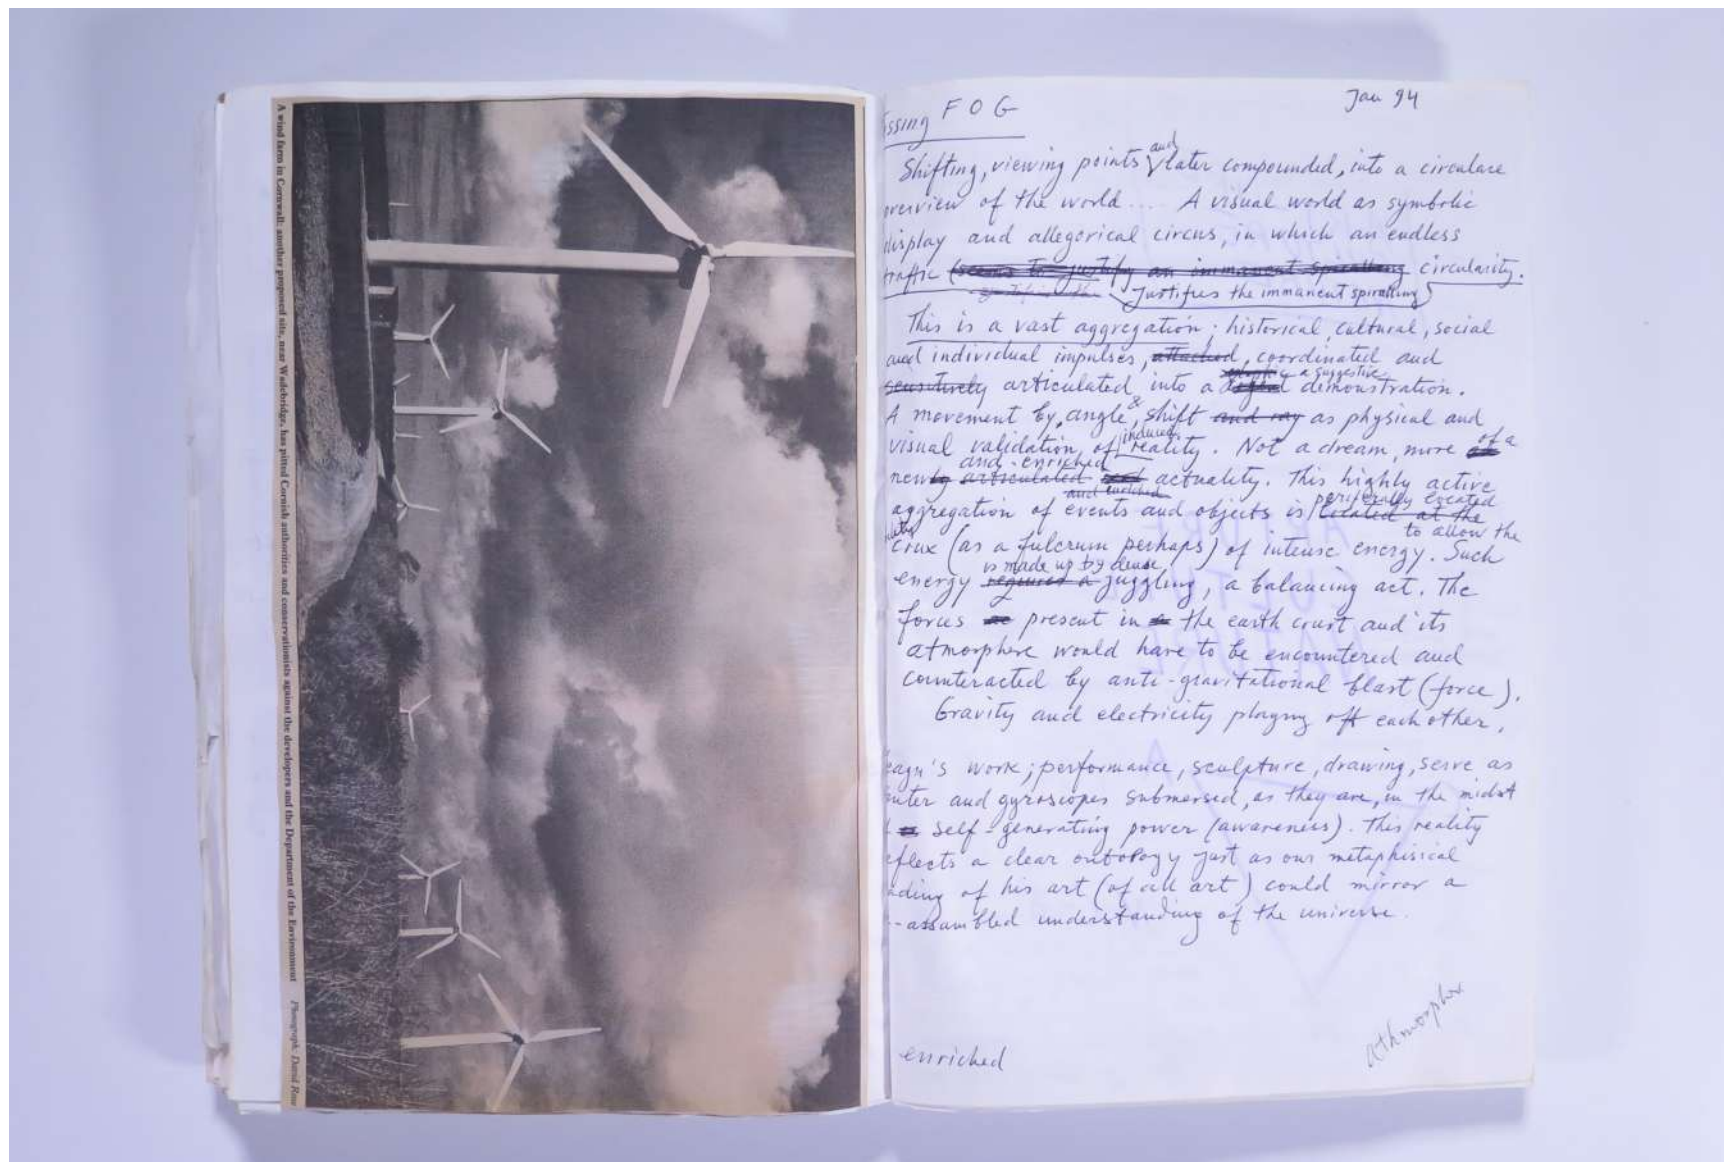 A wind farm in Cornwall: another proposed site, near Wadebridge, has pitted Cornish authorities and conservationists against the developers and the Department of the Environment Photograph: David Rose
issing FOG
Jan 94
Shifting, viewing points and later compounded, into a circulare
overview of the world... A visual world as symbolic
display and allegorical circus, in which an endless
traffic (seems to justify an immanent spiralling circularity.
justifies the immanent spiralling)
This is a vast aggregation; historical, cultural, social
and individual impulses, attached, coordinated and
sensitively articulated into a a suggestive demonstration.
A movement by, angle & shift and ray as physical and
visual validation of induced reality. Not a dream, more of a
newly articulated and enriched actuality. This highly active
and enriched
aggregation of events and objects is periferally located
located at the to allow the
crux (as a fulcrum perhaps) of intense energy. Such
is made up by dense
energy required a juggling, a balancing act. The
forces present in the earth crust and its
atmorphere would have to be encountered and
counteracted by anti-gravitational blast (force).
Gravity and electricity playing off each other,
eagu's work; performance, sculpture, drawing, serve as
nter and gyroscopes submersed, as they are, in the midst
self-generating power (awareness). This reality
eflects a clear ontology just as our metaphisical
ading of his art (of all art) could mirror a
-assambled understanding of the universe.
athmorpher
enriched